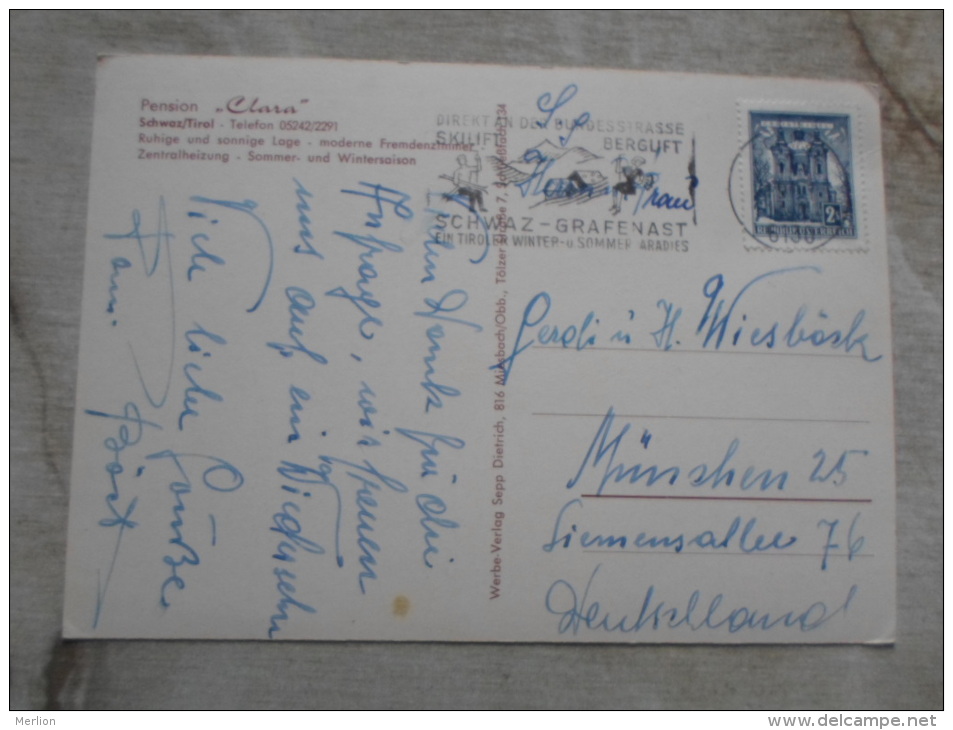 Pension „Clara"
Schwaz/Tirol - Telefon 05242/2291
Ruhige und sonnige Lage - moderne Fremdenzimmer
Zentralheizung - Sommer- und Wintersaison
Dank für die
Anfrage, wir freuen
uns auf ein Wiedersehn
Viele liebe Grüße
Fam.
Werbe-Verlag Sepp Dietrich, 816 Miesbach/Obb., Tölzer Straße 7,
DIREKT AN DER BUNDESSTRASSE
SKILIFT BERGLIFT
SCHWAZ-GRAFENAST
EIN TIROLER WINTER-U.SOMMER ARADIES
2
Frau
Gerdi u H. Wiesböck
München 25
Siemensallee 76
Deutschland
Merlion www.delcampe.net